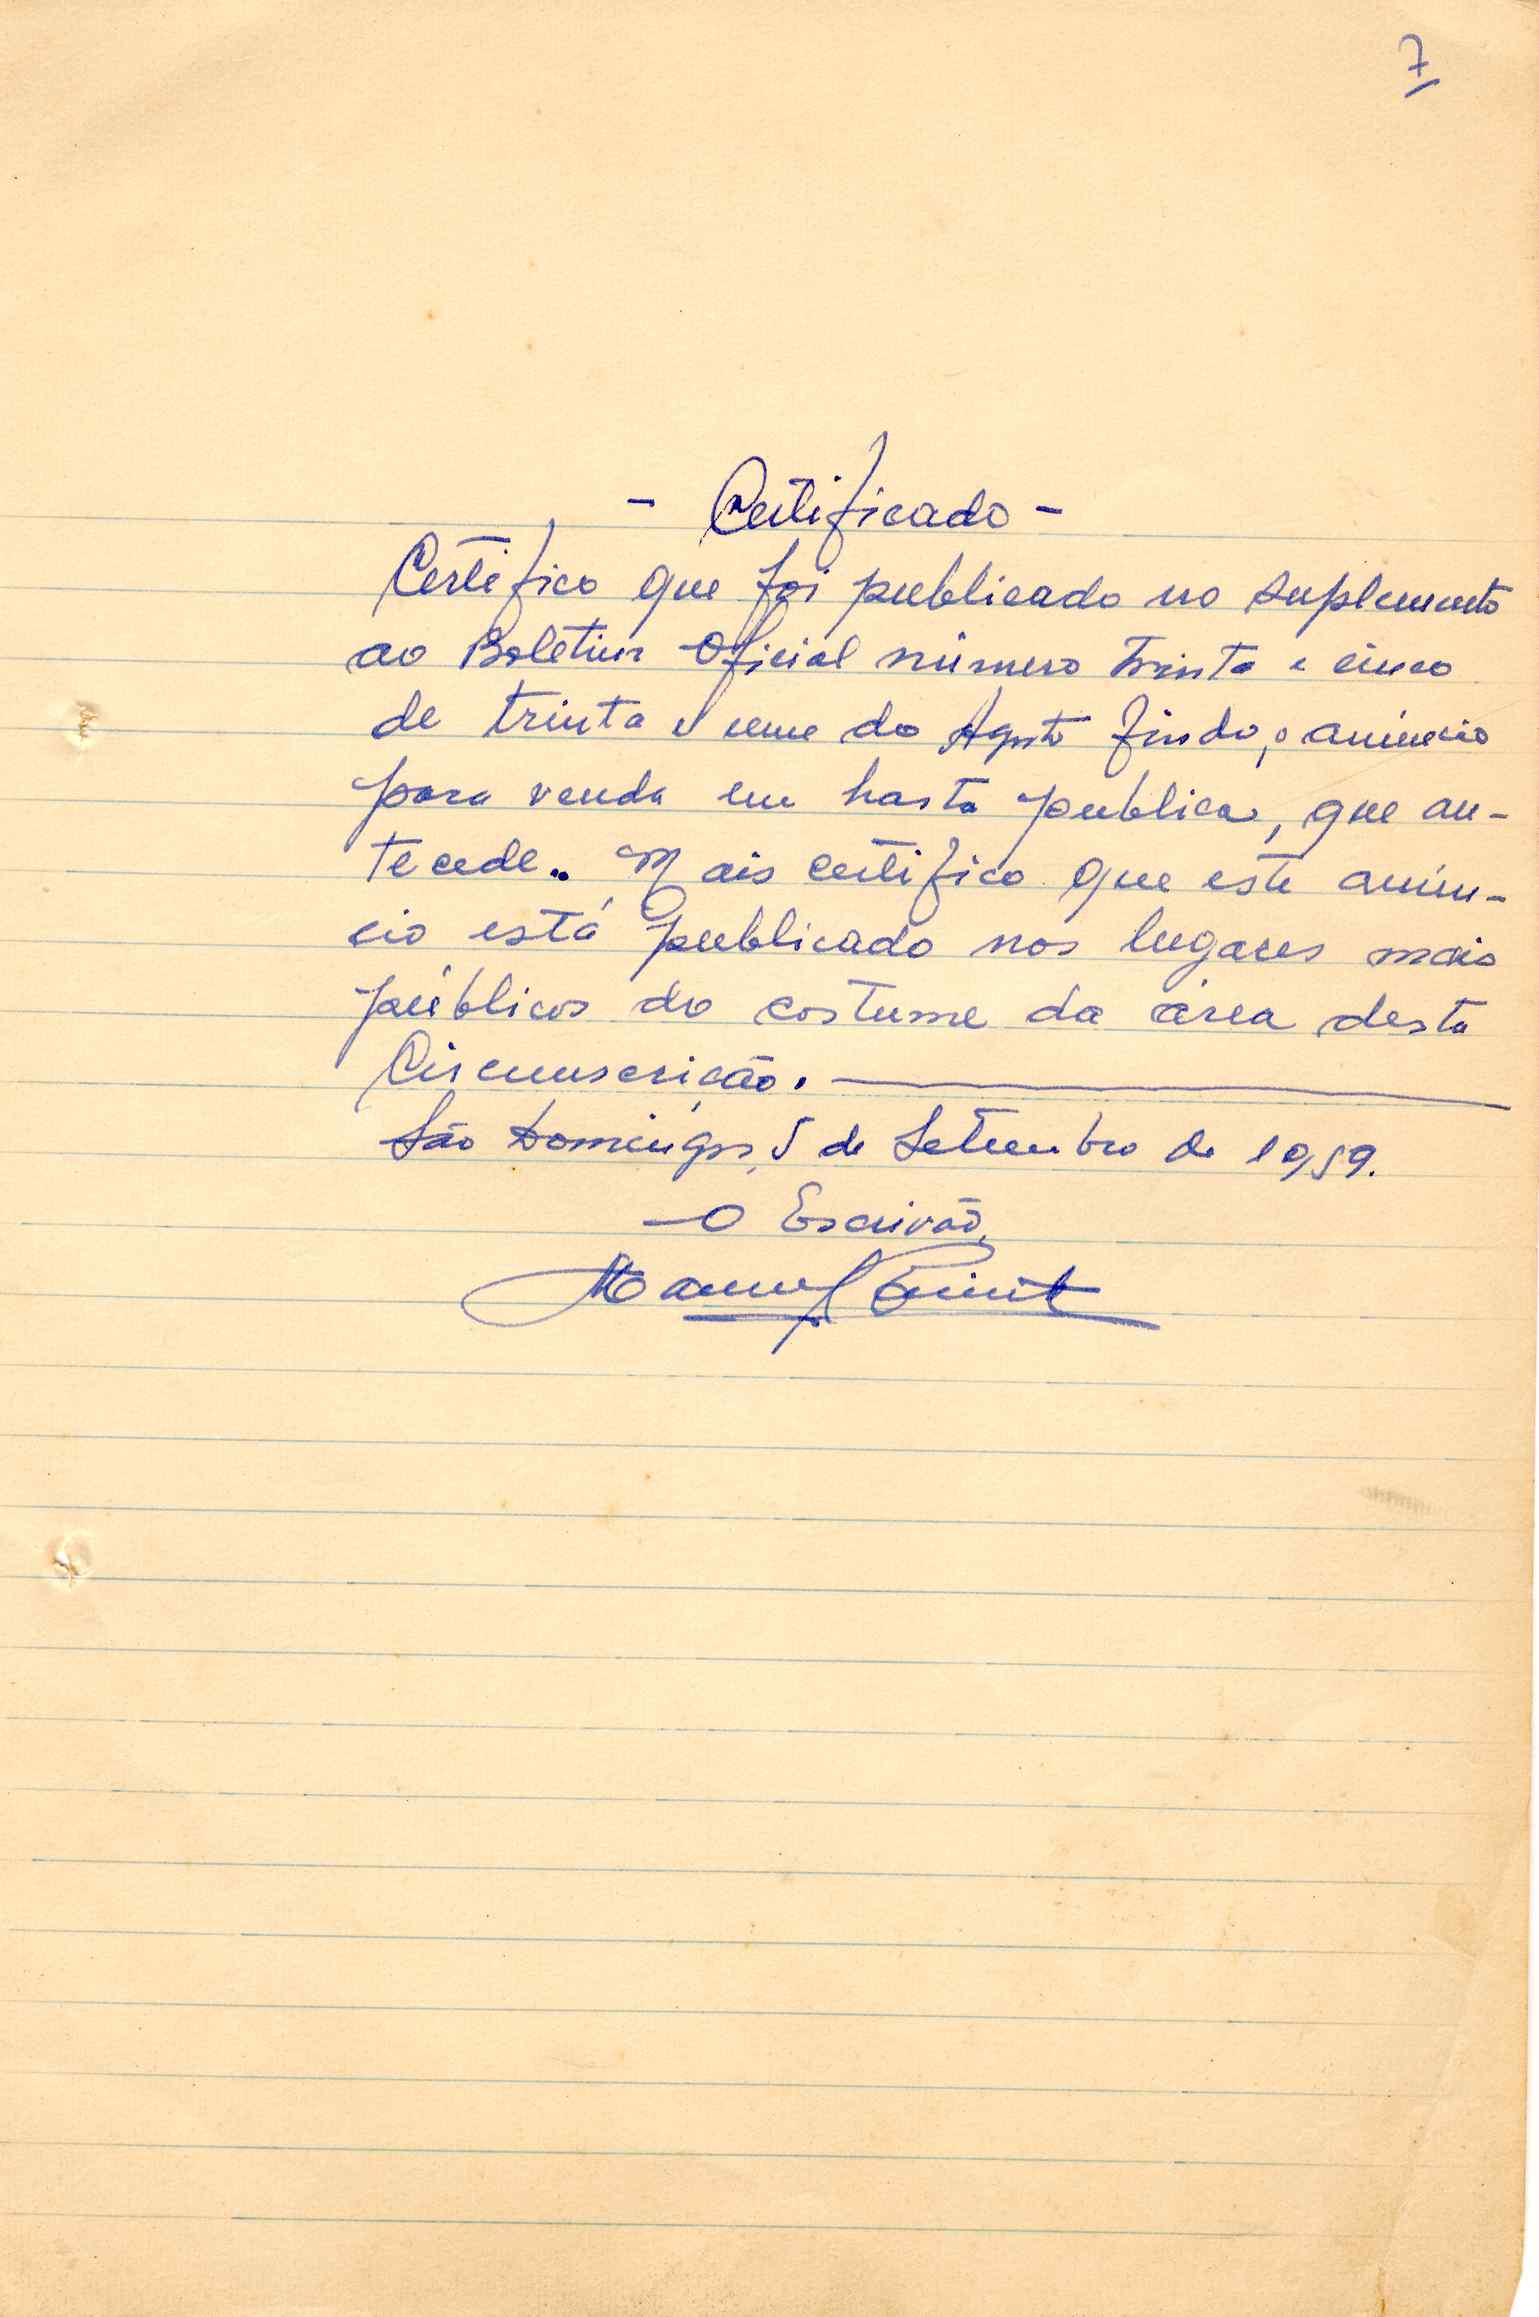 7
- Certificado -
Certifico que foi publicado no suplemento
ao Boletim Oficial número trinta e cinco
de trinta e um do Agosto findo, o anúncio
para venda em hasta publica, que an-
tecede.. Mais certifico que este anún-
cio está publicado nos lugares mais
públicos do costume da área desta
Circunscrição.
São Domingos, 5 de Setembro de 1959.
O Escrivão,
Manuel